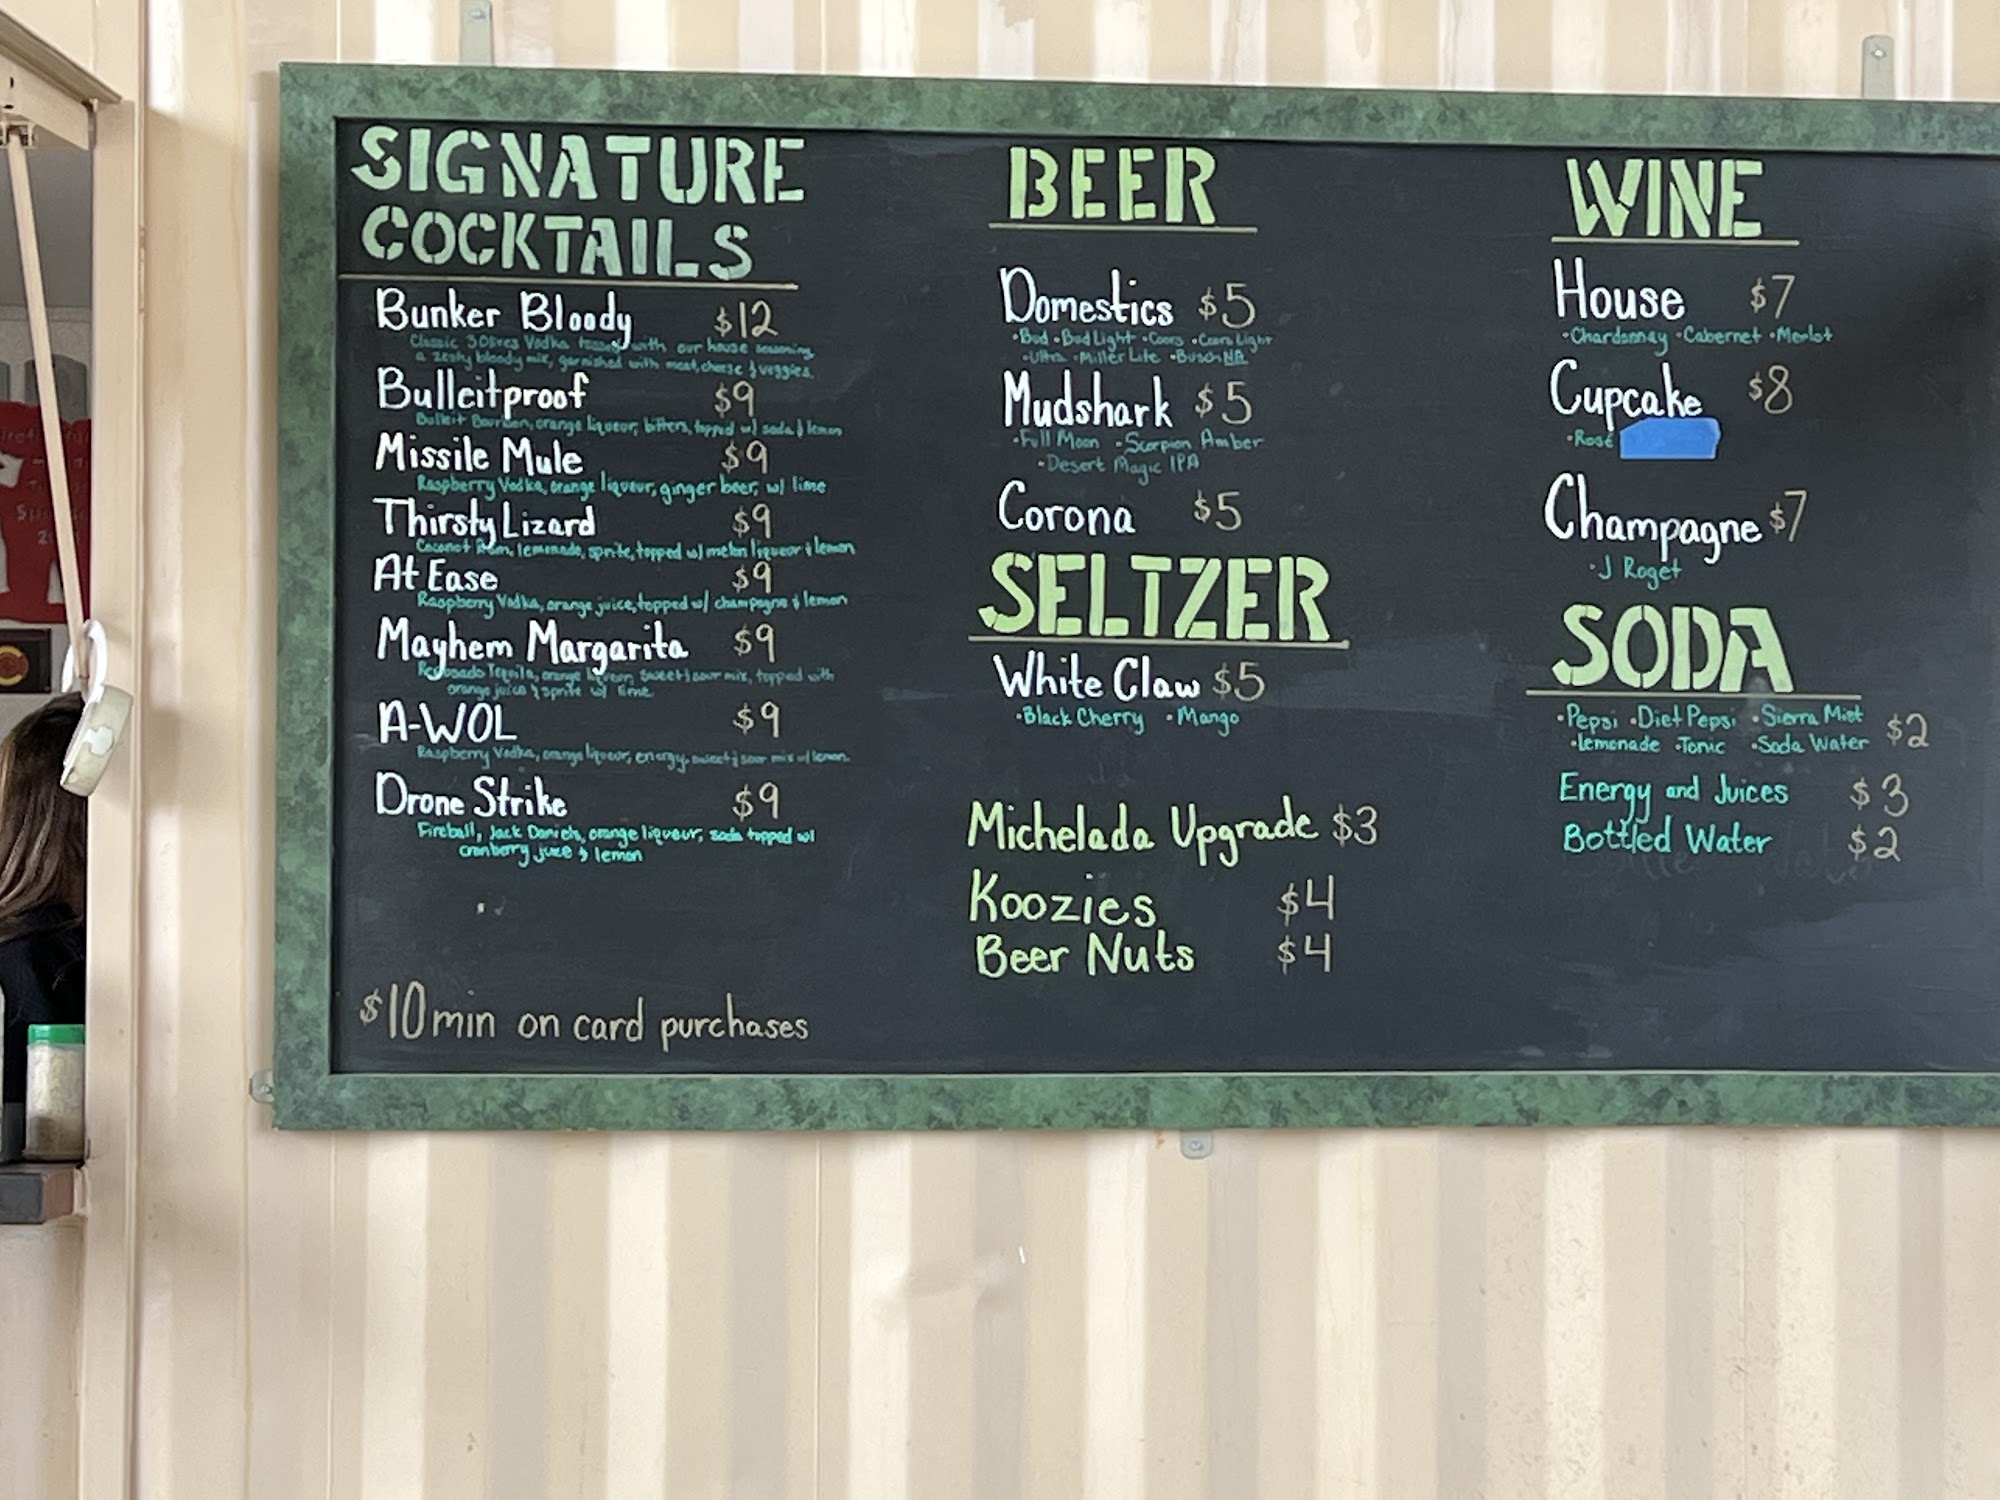 SIGNATURE
COCKTAILS
Bunker Bloody $12
Classic 3 Olives Vodka tossed with our house seasoning,
a zesty bloody mix, garnished with meat, cheese & veggies.
Bulleitproof $9
Bulleit Bourbon, orange liqueur, bitters, topped w/ soda & lemon
Missile Mule $9
Raspberry Vodka, orange liqueur, ginger beer, w/ lime
Thirsty Lizard $9
Coconut Rum, lemonade, sprite, topped w/ melon liqueur & lemon
At Ease $9
Raspberry Vodka, orange juice, topped w/ champagne & lemon
Mayhem Margarita $9
Reposado Tequila, orange liqueur, sweet & sour mix, topped with
orange juice & sprite w/ lime
A-WOL $9
Raspberry Vodka, orange liqueur, energy, sweet & sour mix w/ lemon
Drone Strike $9
Fireball, Jack Daniels, orange liqueur, soda topped w/
cranberry juice & lemon
$10 min on card purchases
BEER
Domestics $5
•Bud •Bud Light •Coors •Coors Light
•Ultra •Miller Lite •Busch NA
Mudshark $5
•Full Moon •Scorpion Amber
•Desert Magic IPA
Corona $5
SELTZER
White Claw $5
•Black Cherry •Mango
Michelada Upgrade $3
Koozies $4
Beer Nuts $4
WINE
House $7
•Chardonnay •Cabernet •Merlot
Cupcake $8
•Rosé
Champagne $7
•J Roget
SODA
•Pepsi •Diet Pepsi •Sierra Mist
•Lemonade •Tonic •Soda Water $2
Energy and Juices $3
Bottled Water $2